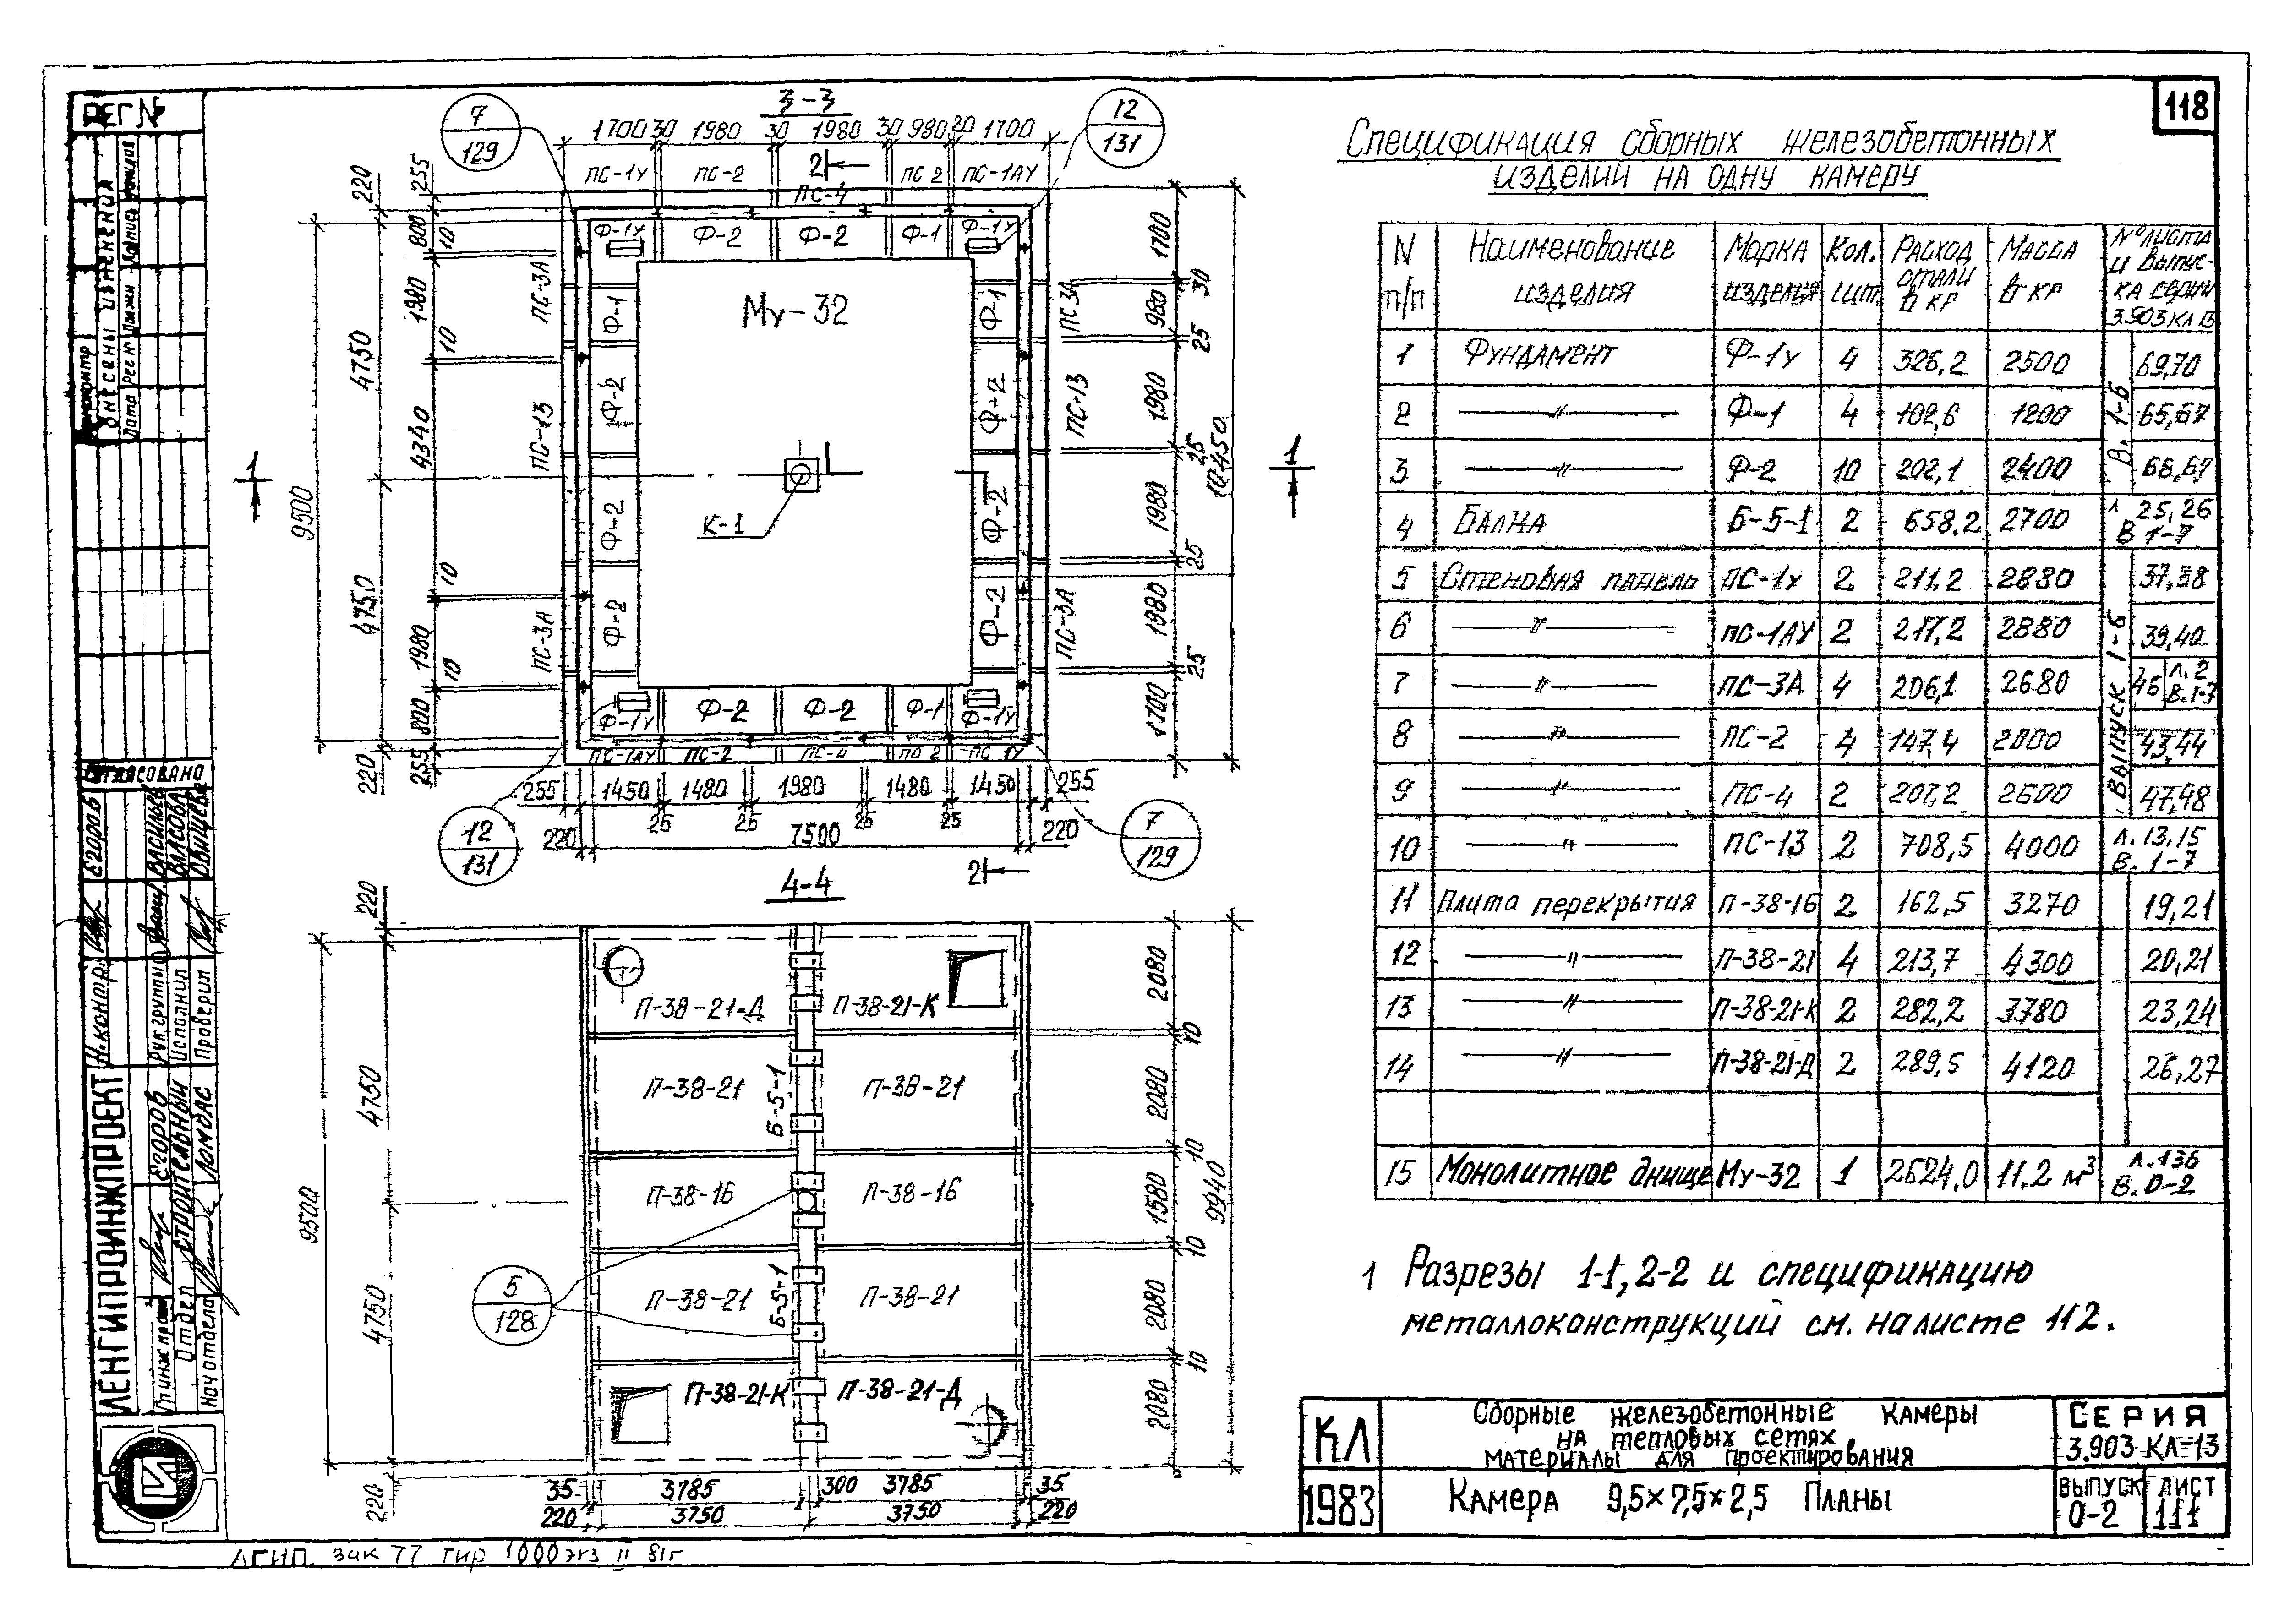 118
РЕГ №
3-3
7
129
12
131
1700 30 1980 30 1980 30 980 20 1700
ПС-1У ПС-2 2 ПС 2 ПС-1АУ
ПС-4
Ф-1У Ф-2 Ф-2 Ф-1 Ф-1У
Му-32
К-1
1 1
220 255
800 10
1980 10
4750
4340
9500
4750
10
1980 10
800
220 255
ПС-3А Ф-1 Ф-1 ПС 3А
ПС-13 Ф-2 Ф-2 ПС-13
Ф-2 Ф-2
ПС-3А Ф-2 Ф-2 ПС-3А
1700 30
980 25
1980 25
10450
1980 25
1980 25
1700
Ф-1У Ф-2 Ф-2 Ф-1 Ф-1У
ПС-1АУ ПС-2 ПС-4 ПС 2 ПС 1У
255 1450 1480 1980 1480 1450 255
25 25 25 25
220 7500 220
12
131
7
129
2
4-4
220
9500
4750
4750
220
П-38-21-Д П-38-21-К
П-38-21 Б-5-1 П-38-21
П-38-16 П-38-16
П-38-21 Б-5-1 П-38-21
П-38-21-К П-38-21-Д
5
128
2080
10
2080
10
1580
9940
10
2080
10
2080
35 3785 300 3785 35
220 3750 3750 220
Спецификация сборных железобетонных
изделий на одну камеру
N п/п Наименование изделия Марка изделия Кол. шт. Расход стали в кг Масса в кг N° листа и выпуска серии 3.903 КЛ 13
1 Фундамент Ф-1У 4 326,2 2500 69,70
2 —〃— Ф-1 4 102,6 1200 65,67
3 —〃— Ф-2 10 202,1 2400 68,67
В. 1-6
4 Балка Б-5-1 2 658,2 2700 л 25,26 В 1-7
5 Стеновая панель ПС-1У 2 211,2 2880 37,38
6 —〃— ПС-1АУ 2 217,2 2880 39,40
7 —〃— ПС-3А 4 206,1 2680 46 л. 2 В. 1-7
8 —〃— ПС-2 4 147,4 2000 43,44
9 —〃— ПС-4 2 207,2 2600 47,48
Выпуск 1-6
10 —〃— ПС-13 2 708,5 4000 л. 13,15 В. 1-7
11 Плита перекрытия П-38-16 2 162,5 3270 19,21
12 —〃— П-38-21 4 213,7 4300 20,21
13 —〃— П-38-21-К 2 282,2 3780 23,24
14 —〃— П-38-21-Д 2 289,5 4120 26,27
15 Монолитное днище Му-32 1 2624,0 11.2 м³ л. 136 В. 0-2
1 Разрезы 1-1, 2-2 и спецификацию
металлоконструкций см. на листе 112.
КЛ
1983
Сборные железобетонные камеры
на тепловых сетях
материалы для проектирования
Камера 9,5×7,5×2,5 Планы
Серия
3.903 КЛ-13
Выпуск Лист
0-2 111
Внесены изменения
Согласовано
Егоров
Васильев
Власова
Н. контр.
Рук. группы
Исполнил
Проверил
ЛЕНГИПРОИНЖПРОЕКТ
Егоров
Отдел строительный
Нач. отдела Ломбас
ЛГИП. зак 77 тир 1000 экз II 81г